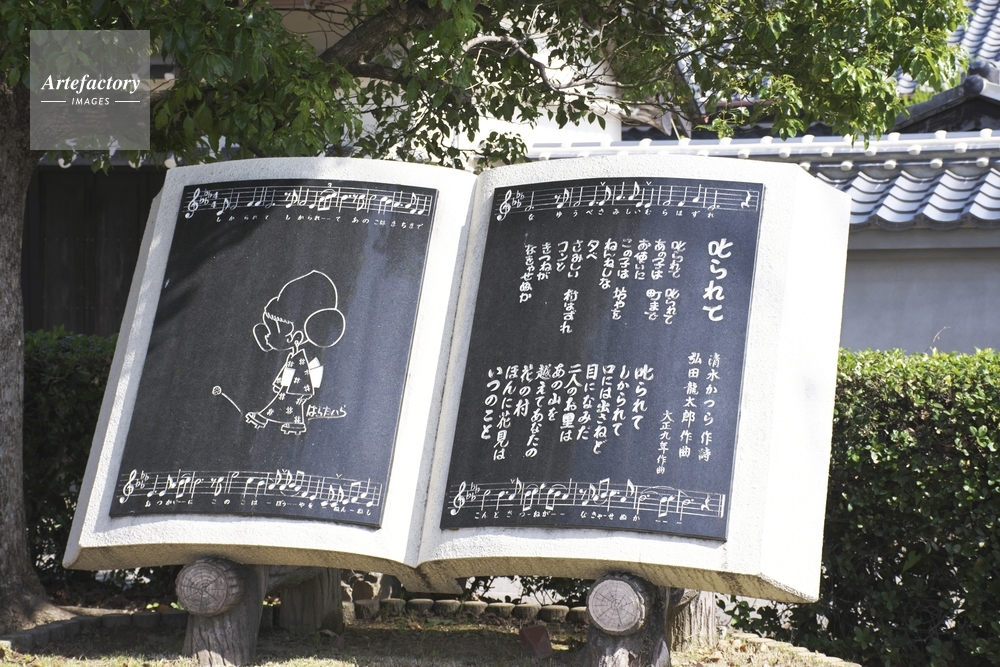 Artefactory
IMAGES
しかられて しかられーて あのこはまちまで
おつかいーに このこはーぼうーやを ねんーねし
な ゆうべさみしいむらはずれ
叱られて
清水かつら 作詩
弘田龍太郎 作曲
大正九年作曲
叱られて 叱られて
あの子は 町まで
お使いに
この子は 坊やを
ねんねしな
夕べ
さみしい 村はずれ
コンと
きつねが
なきゃせぬか
叱られて
しかられて
口には出さねど
目になみだ
二人のお里は
あの山を
越えてあなたの
花の村
ほんに花見は
いつのこと
こんときつーねがー なきゃーせぬか